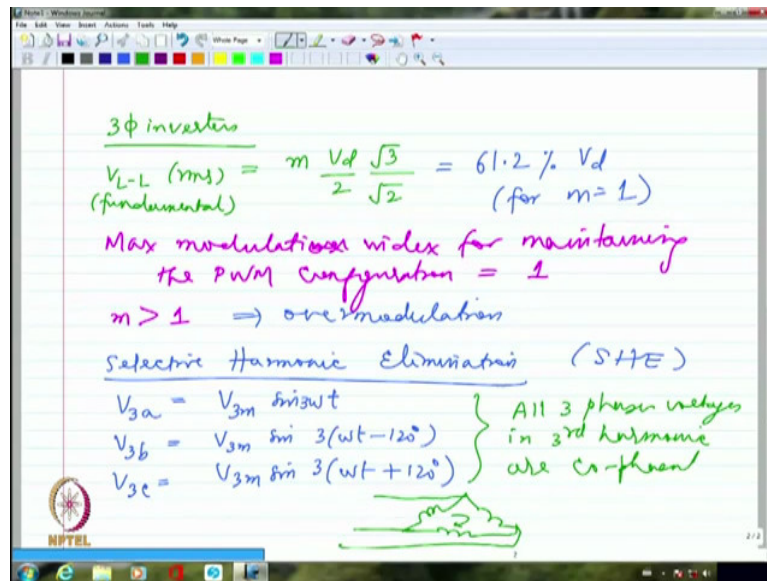 Note1 - Windows Journal
File Edit View Insert Actions Tools Help
Whole Page
3ϕ inverters
V_{L-L} (rms) = m \frac{Vd}{2} \frac{√3}{√2} = 61.2 % Vd
(fundamental) (for m=1)
Max modulation index for maintaining
the PWM configuration = 1
m > 1 ⇒ overmodulation
Selective Harmonic Elimination (SHE)
V_{3a} = V_{3m} sin3ωt
V_{3b} = V_{3m} sin 3(ωt-120°)
V_{3c} = V_{3m} sin 3(ωt+120°)
All 3 phase voltages
in 3rd harmonic
are co-phasal
NPTEL
2/2